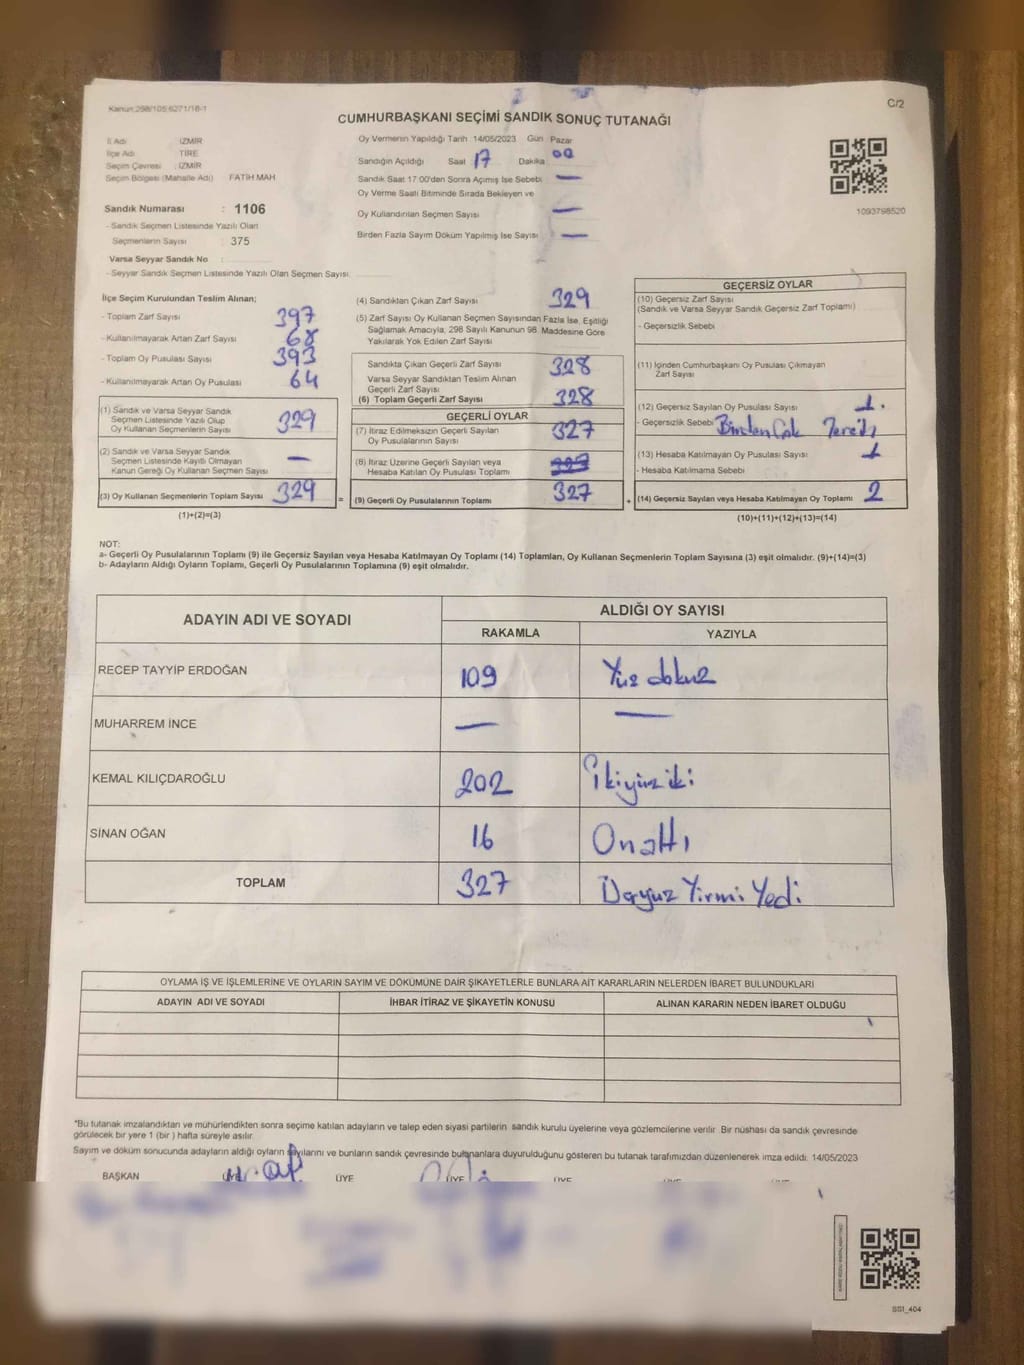 Kanun:298/105;6271/18-1
C/2
CUMHURBAŞKANI SEÇİMİ SANDIK SONUÇ TUTANAĞI
İl Adı : İZMİR
İlçe Adı : TİRE
Seçim Çevresi : İZMİR
Seçim Bölgesi (Mahalle Adı) FATİH MAH
Sandık Numarası : 1106
- Sandık Seçmen Listesinde Yazılı Olan
Seçmenlerin Sayısı : 375
Varsa Seyyar Sandık No :
- Seyyar Sandık Seçmen Listesinde Yazılı Olan Seçmen Sayısı:
Oy Vermenin Yapıldığı Tarih 14/05/2023 Gün Pazar
Sandığın Açıldığı Saat 17 Dakika 00
Sandık Saat 17:00'dan Sonra Açımış İse Sebebi —
Oy Verme Saati Bitiminde Sırada Bekleyen ve
Oy Kullandırılan Seçmen Sayısı —
Birden Fazla Sayım Döküm Yapılmış İse Sayısı —
1093798520
İlçe Seçim Kurulundan Teslim Alınan;
- Toplam Zarf Sayısı 397
- Kullanılmayarak Artan Zarf Sayısı 68
- Toplam Oy Pusulası Sayısı 393
- Kullanılmayarak Artan Oy Pusulası 64
(1) Sandık ve Varsa Seyyar Sandık
Seçmen Listesinde Yazılı Olup
Oy Kullanan Seçmenlerin Sayısı 329
(2) Sandık ve Varsa Seyyar Sandık
Seçmen Listesinde Kayıtlı Olmayan
Kanun Gereği Oy Kullanan Seçmen Sayısı —
(3) Oy Kullanan Seçmenlerin Toplam Sayısı 329
(1)+(2)=(3)
=
(4) Sandıktan Çıkan Zarf Sayısı 329
(5) Zarf Sayısı Oy Kullanan Seçmen Sayısından Fazla İse, Eşitliği
Sağlamak Amacıyla, 298 Sayılı Kanunun 98. Maddesine Göre
Yakılarak Yok Edilen Zarf Sayısı
Sandıkta Çıkan Geçerli Zarf Sayısı 328
Varsa Seyyar Sandıktan Teslim Alınan
Geçerli Zarf Sayısı
(6) Toplam Geçerli Zarf Sayısı 328
GEÇERLİ OYLAR
(7) İtiraz Edilmeksizin Geçerli Sayılan
Oy Pusulalarının Sayısı 327
(8) İtiraz Üzerine Geçerli Sayılan veya
Hesaba Katılan Oy Pusulası Toplamı
(9) Geçerli Oy Pusulalarının Toplamı 327
+
GEÇERSİZ OYLAR
(10) Geçersiz Zarf Sayısı
(Sandık ve Varsa Seyyar Sandık Geçersiz Zarf Toplamı)
- Geçersizlik Sebebi
(11) İçinden Cumhurbaşkanı Oy Pusulası Çıkmayan
Zarf Sayısı
(12) Geçersiz Sayılan Oy Pusulası Sayısı 1.
- Geçersizlik Sebebi Birden Çok
(13) Hesaba Katılmayan Oy Pusulası Sayısı 1
- Hesaba Katılmama Sebebi
(14) Geçersiz Sayılan veya Hesaba Katılmayan Oy Toplamı 2
(10)+(11)+(12)+(13)=(14)
NOT:
a- Geçerli Oy Pusulalarının Toplamı (9) ile Geçersiz Sayılan veya Hesaba Katılmayan Oy Toplamı (14) Toplamları, Oy Kullanan Seçmenlerin Toplam Sayısına (3) eşit olmalıdır. (9)+(14)=(3)
b- Adayların Aldığı Oyların Toplamı, Geçerli Oy Pusulalarının Toplamına (9) eşit olmalıdır.
ADAYIN ADI VE SOYADI
ALDIĞI OY SAYISI
RAKAMLA YAZIYLA
RECEP TAYYİP ERDOĞAN 109 Yüz dokuz
MUHARREM İNCE — —
KEMAL KILIÇDAROĞLU 202 İkiyüz iki
SİNAN OĞAN 16 Onaltı
TOPLAM 327 Üçyüz Yirmi Yedi
OYLAMA İŞ VE İŞLEMLERİNE VE OYLARIN SAYIM VE DÖKÜMÜNE DAİR ŞİKAYETLERLE BUNLARA AİT KARARLARIN NELERDEN İBARET BULUNDUKLARI
ADAYIN ADI VE SOYADI İHBAR İTİRAZ VE ŞİKAYETİN KONUSU ALINAN KARARIN NEDEN İBARET OLDUĞU
*Bu tutanak imzalandıktan ve mühürlendikten sonra seçime katılan adayların ve talep eden siyasi partilerin sandık kurulu üyelerine veya gözlemcilerine verilir. Bir nüshası da sandık çevresinde
görülecek bir yere 1 (bir ) hafta süreyle asılır.
Sayım ve döküm sonucunda adayların aldığı oyların sayılarını ve bunların sandık çevresinde bulunanlara duyurulduğunu gösteren bu tutanak tarafımızdan düzenlenerek imza edildi. 14/05/2023
BAŞKAN ÜYE ÜYE ÜYE ÜYE ÜYE
SS1_404